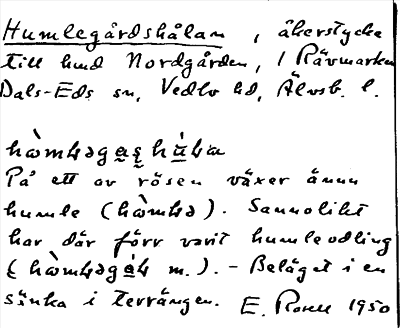 Humlegårdshålan, åkerstycke
till hmd Nordgården, 1 Rävmarken
Dals-Eds sn, Vedbo hd, Älvsb. l.
På ett av rösen växer ännu
humle ( ). Sannolikt
har där förr varit humleodling
( m.). - Beläget i en
sänka i terrängen. E. 1950